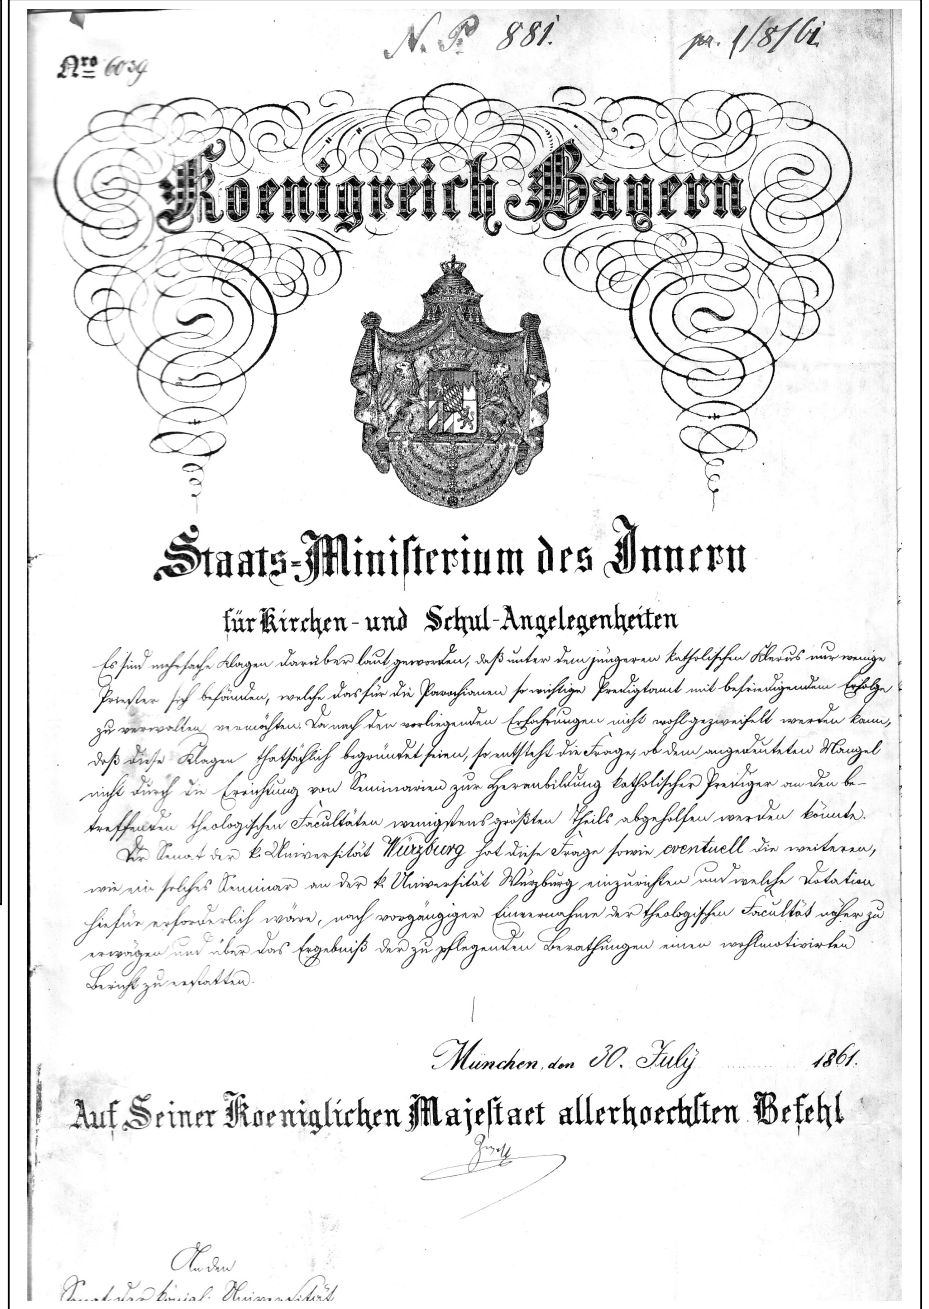 N. P. 881.
pr. 1/8/61.
Nro 6039
Koenigreich Bayern
Staats-Ministerium des Innern
für Kirchen- und Schul-Angelegenheiten
Es sind mehrfache Klagen darüber laut geworden, daß unter dem jüngeren katholischen Klerus nur wenige
Priester sich befänden, welche das für die Parochianen so wichtige Predigtamt mit befriedigendem Erfolge
zu verwalten vermöchten. Da nach den vorliegenden Erfahrungen nicht wohl gezweifelt werden kann,
daß diese Klagen thatsächlich begründet seien, so entsteht die Frage, ob dem angedeuteten Mangel
nicht durch die Errichtung von Seminarien zur Heranbildung katholischer Prediger an den be-
treffenden theologischen Facultäten wenigstens größten Theils abgeholfen werden könnte.
Der Senat der k. Universität Würzburg hat diese Frage sowie eventuell die weiteren,
wie ein solches Seminar an der k. Universität Würzburg einzurichten und welche Dotation
hiefür erforderlich wäre, nach vorgängiger Einvernahme der theologischen Facultät näher zu
erwägen und über das Ergebniß der zu pflegenden Berathungen einen wohlmotivirten
Bericht zu erstatten.
München, den 30. July 1861.
Auf Seiner Koeniglichen Majestaet allerhoechsten Befehl
An den
Senat der königl. Universität